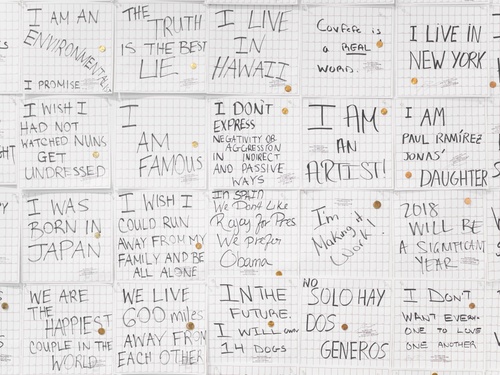 I AM AN
ENVIRONMENTALIST
I PROMISE
THE
TRUTH
IS THE BEST
LIE
I LIVE
IN
HAWAII
Confefe is
a REAL
WORD.
I LIVE IN
NEW YORK
HT
I WISH I
HAD NOT
WATCHED NUNS
GET
UNDRESSED
I
AM
FAMOUS
I DON'T
EXPRESS
NEGATIVITY OR
AGGRESSION
IN INDIRECT
AND PASSIVE
WAYS
I AM
AN
ARTIST!
I AM
PAUL RAMÍREZ
JONAS'
DAUGHTER
I WAS
BORN IN
JAPAN
I WISH I
COULD RUN
AWAY FROM MY
FAMILY AND BE
ALL ALONE
IN SPAIN
We Don't Like
Rajoy for Pres
We prefer
Obama
I'm
Making it
Work!
2018
WILL BE
A SIGNIFICANT
YEAR
WE ARE
THE
HAPPIEST
COUPLE IN THE
WORLD
WE LIVE
600 miles
AWAY FROM
EACH OTHER
IN THE
FUTURE.
I WILL own
14 DOGS
NO
SOLO HAY
DOS
GENEROS
I DON'T
WANT EVERY
ONE TO LOVE
ONE ANOTHER